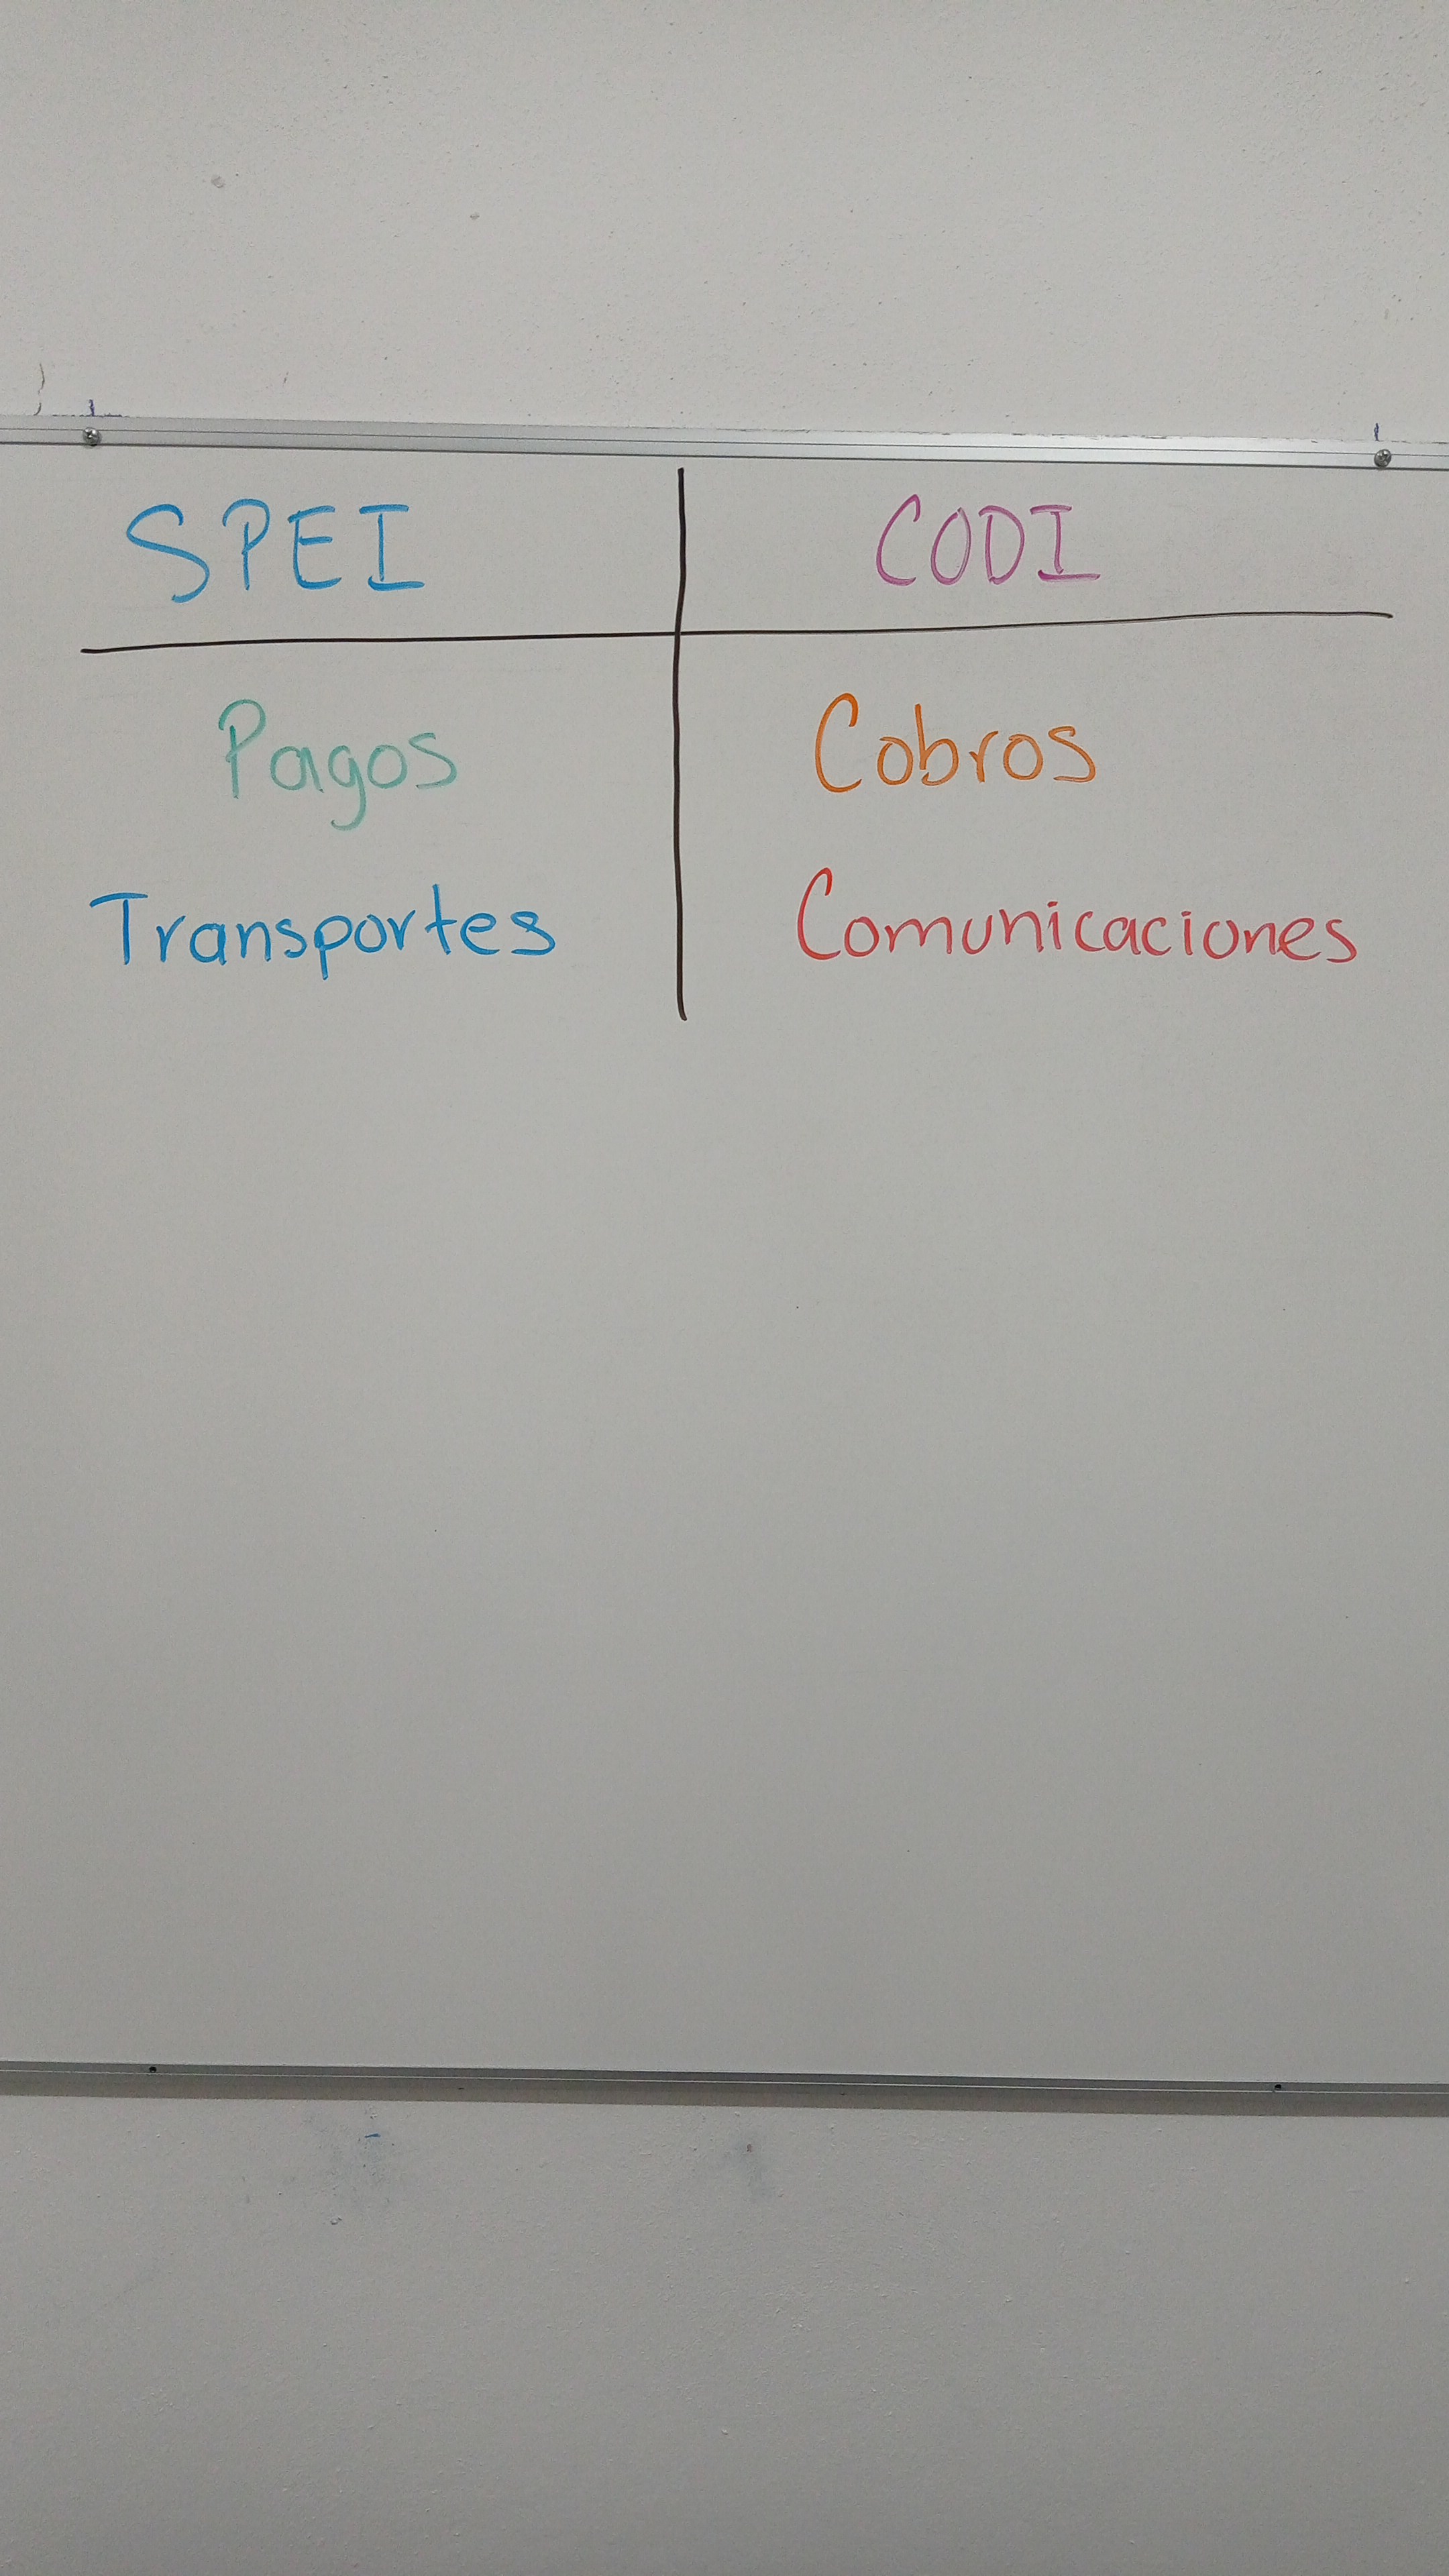 SPEI CODI
Pagos Cobros
Transportes Comunicaciones